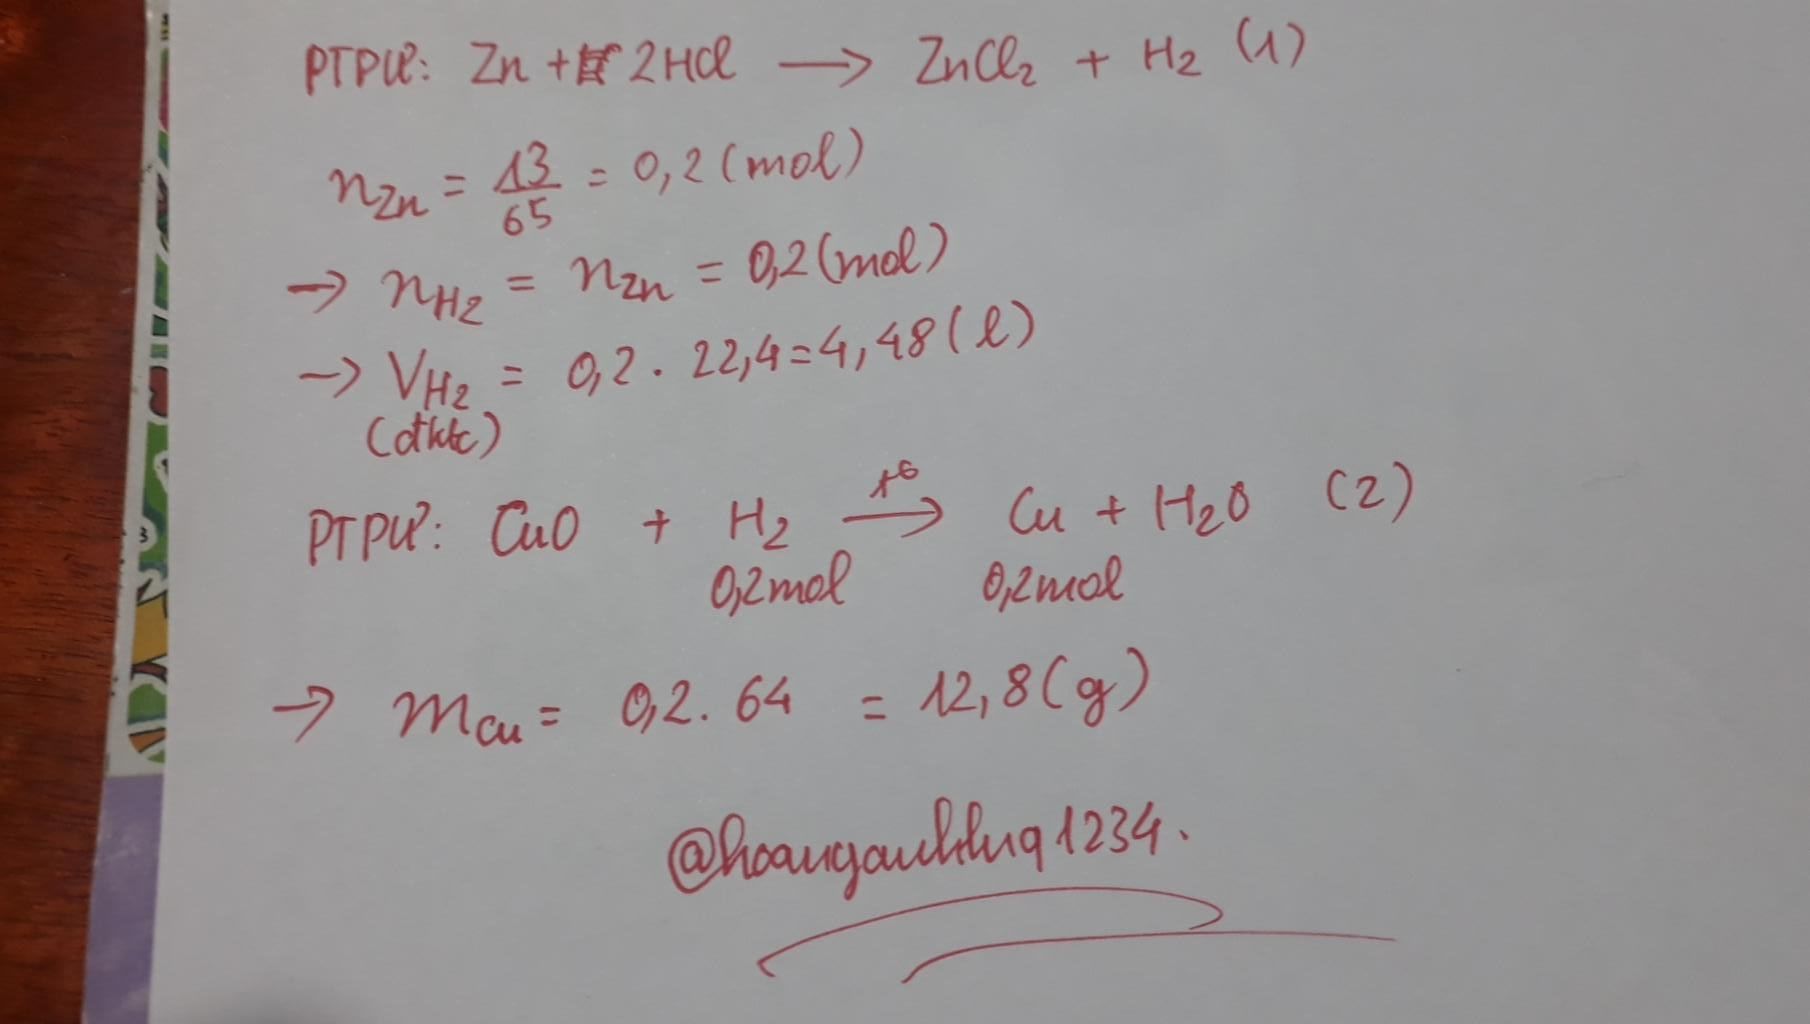 PTPƯ: Zn + 2HCl → ZnCl₂ + H₂ (1)
n_Zn = 13/65 = 0,2 (mol)
→ n_H₂ = n_Zn = 0,2 (mol)
→ V_H₂ = 0,2 . 22,4 = 4,48 (l)
(đktc)
PTPƯ: CuO + H₂ →(t°) Cu + H₂O (2)
0,2mol 0,2mol
→ m_Cu = 0,2 . 64 = 12,8 (g)